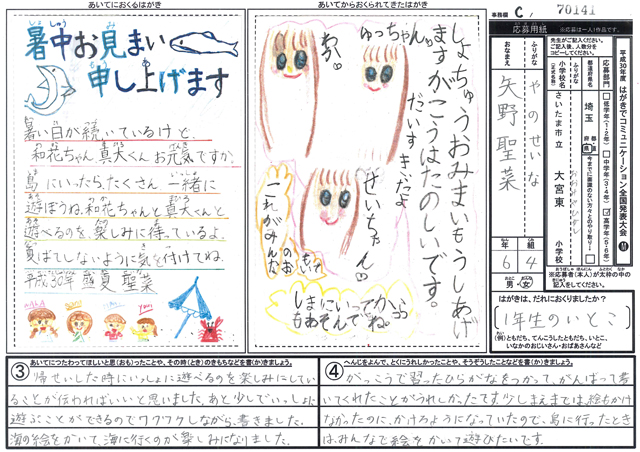 あいてにおくるはがき
暑中お見まい
申し上げます
暑い日が続いているけど、
和花ちゃん真大くんお元気ですか。
島にいったら、たくさん一緒に
遊ぼうね。和花ちゃんと真大くんと
遊べるのを、楽しみに待っているよ。
夏ばてしないように気を付けてね。
平成30年 盛夏 聖菜
あいてからおくられてきたはがき
しょちゅうおみまいもうしあげ
ますがっこうはたのしいです。
だいすきだよ
せいちゃん
これがみんな
のかお
しまにいってから
もあそんでね。
事務欄 C
70141
応募用紙
※応募は一人1作品です。
ふりがな
おなまえ
やの せいな
矢野 聖菜
6年
4組
男・女
先生がご記入ください。
ご記入後、人数分を
コピーしてください。
都道府県名
埼玉
小学校名
(正式名称)
さいたま市立
大宮東
小学校
応募部門
低学年(1・2年)
中学年(3・4年)
高学年(5・6年)
平成30年度 はがきでコミュニケーション全国発表大会
※応募者(本人)が太枠の中の
記入をしてください。
はがきは、だれにおくりましたか?
(1年生のいとこ)
(例)ともだち、てんこうしたともだち、いとこ、
いなかのおじいさん・おばあさんなど
③ あいてにつたわってほしいと思(おも)ったことや、その時(とき)のきもちなどを書(か)きましょう。
帰せいした時にいっしょに遊べるのを楽しみにしてい
ることが伝わればいいと思いました。あと少しでいっしょに
遊ぶことができるのでワクワクしながら、書きました。
海の絵をかいて、海に行くのが楽しみになりました。
④ へんじをよんで、とくにうれしかったことや、そうぞうしたことなどを書(か)きましょう。
がっこうで習ったひらがなをつかって、がんばって書
いてくれたことがうれしかったです。少しまえまでは、絵もかけ
なかったのに、かけるようになっていたので、島に行ったとき
は、みんなで絵をかいて遊びたいです。